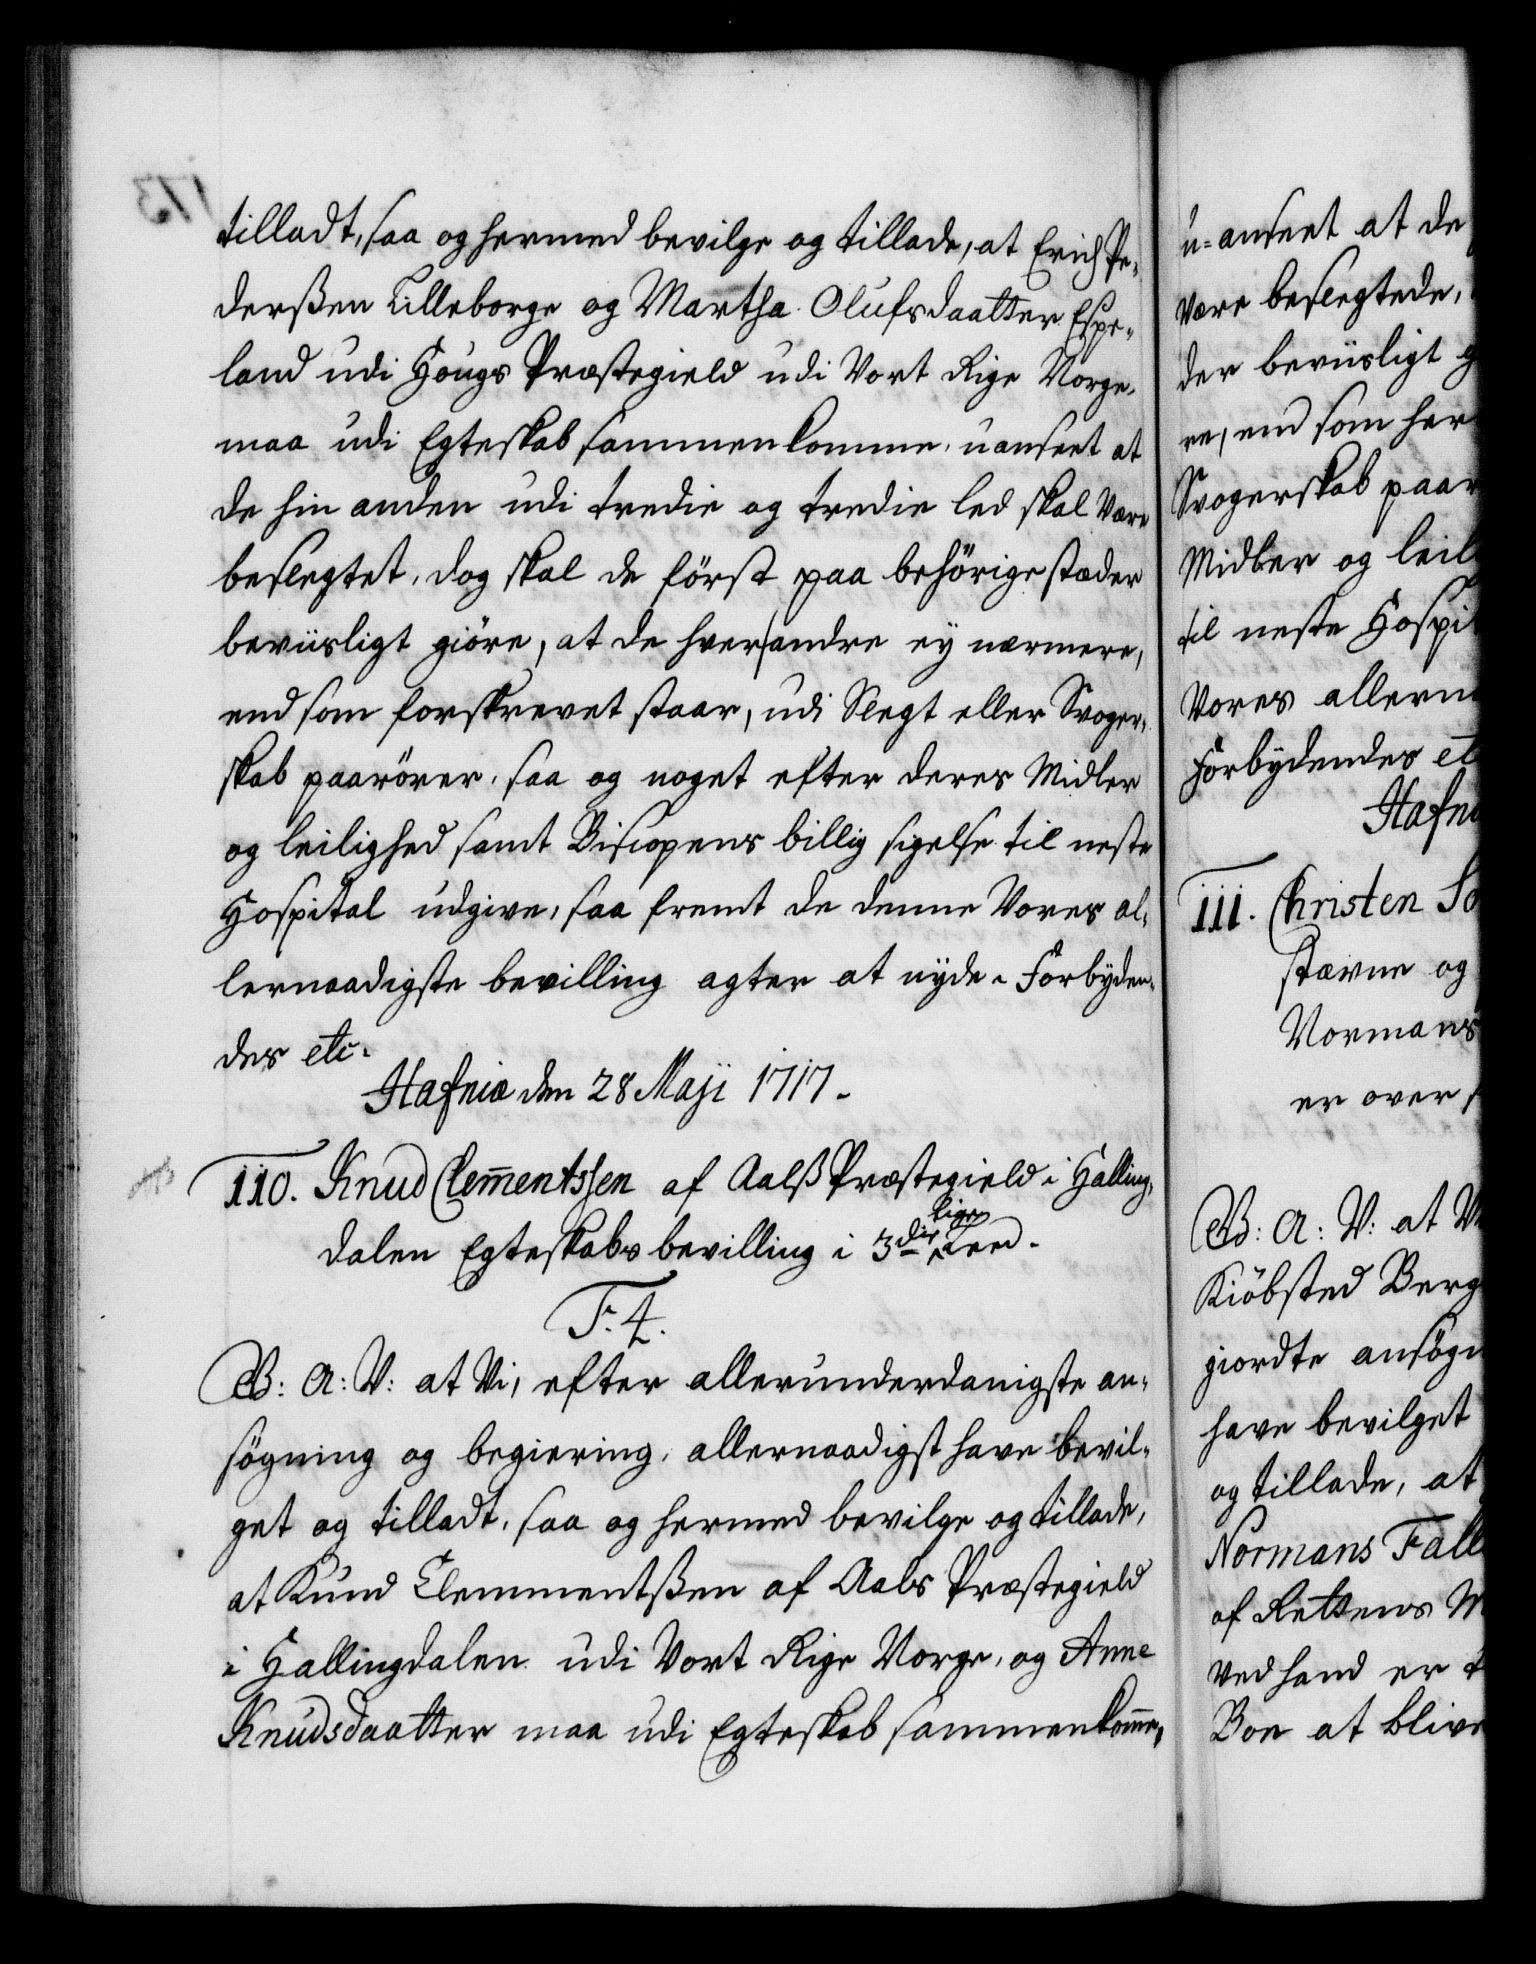 tilladt, saa og hermed bevilge og tillade, at Erich Pe-
derssen Lilleborge og Martha Olufsdaatter Espe-
land udi Hougs Præstegield udi Vort Rige Norge,
maa udi Egteskab sammenkomme, uanseet at
de hin anden udi tredie og tredie led skal være
beslegtet, dog skal de först paa behörige stæder
beviisligt giöre, at de hverandre ey nærmere,
end som forskrevet staar, udi Slegt eller Svoger-
skab paarörer, saa og noget efter deres Midler
og leilighed samt Biscopens billig sigelse til neste
Hospital udgive, saa fremt de denne Vores al-
lernaadigste bevilling agter at nyde. Forbyden-
des etc.
Hafniæ den 28 Maji 1717.
110. Knud Clem̄entssen af Aalss Præstegield i Halling-
dalen Egteskabs bevilling i 3die lige Leed.
F. 4.
G: A: V: at Vi, efter allerunderdanigste an-
søgning og begiering, allernaadigst have bevil-
get og tilladt, saa og hermed bevilge og tillade,
at Knud Clemmentssen af Aals Præstegield
i Hallingdalen udi Vort Rige Norge, og Anne
Knudsdaatter maa udi Egteskab sammenkom̄e,
u-anseet at de
være beslegtede,
der beviisligt g
re, end som her
Svogerskab paar
Midler og leil
til neste Hospit
Vores allern
Forbydendes et
Hafni
111. Christen So
stævne og
Normans
er over s
G: A: V: at V
Kiöbsted Berg
giordte ansögn
have bevilget
og tillade, at
Normans Fall
af Rettens M
ved haand er
Boe at blive